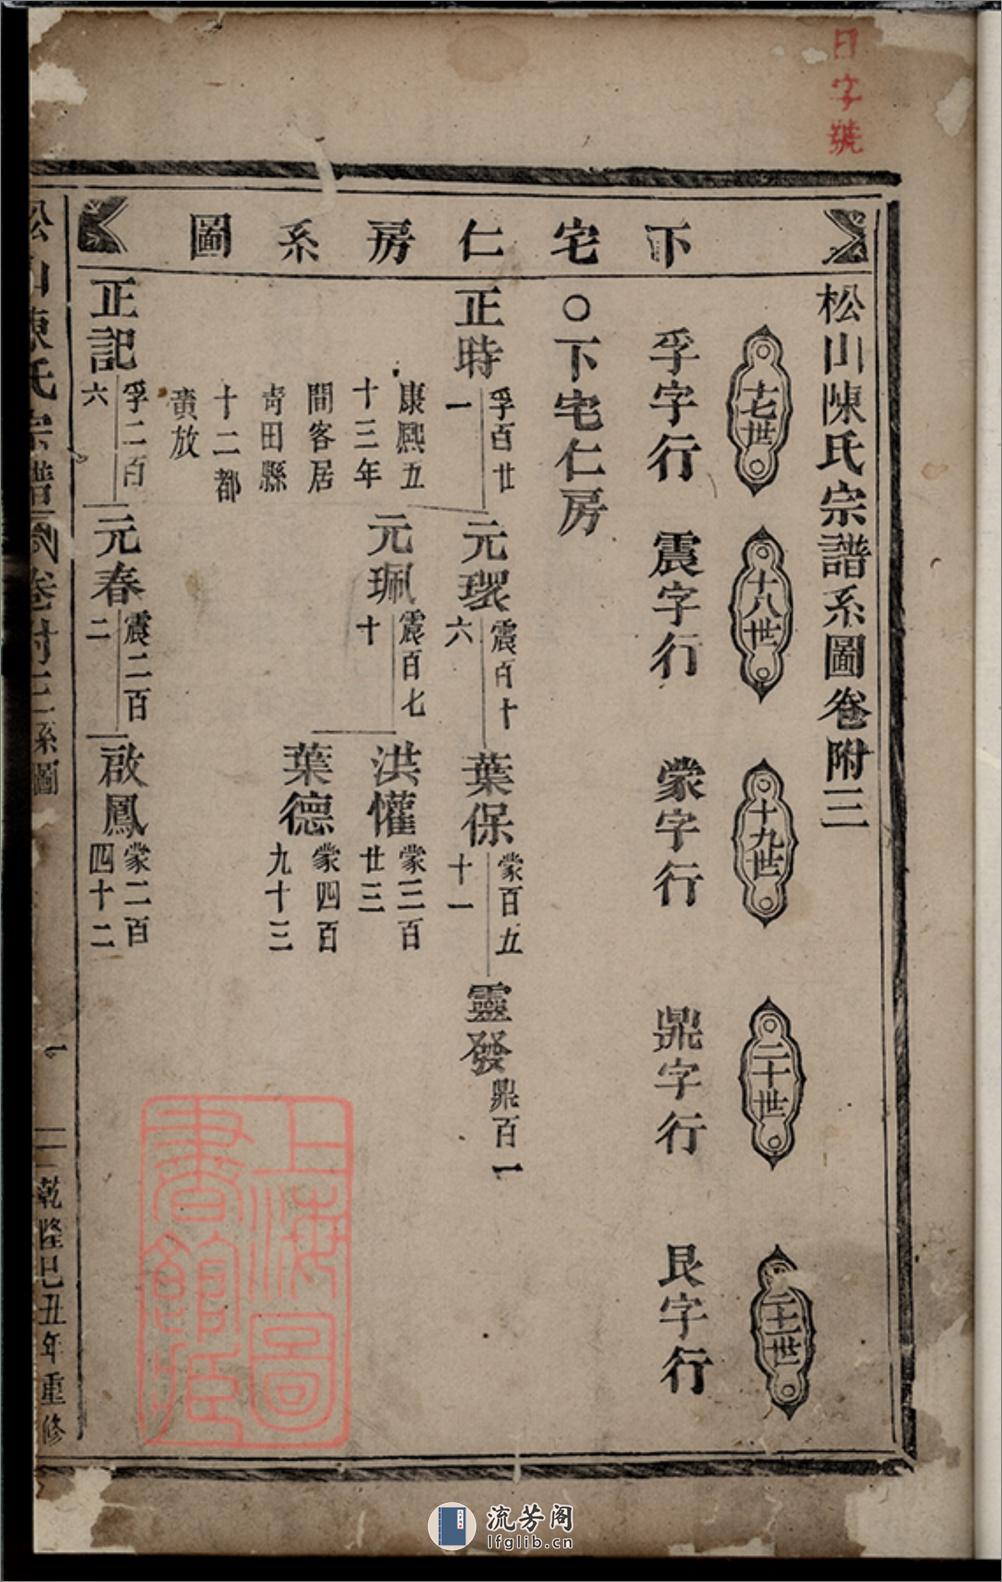 日字號
下宅仁房系圖
松山陳氏宗譜系圖卷附三
十七世
十八世
十九世
二十世
二十一世
孚字行
震字行
蒙字行
鼎字行
艮字行
○下宅仁房
正時
孚百廿
一
康熙五
十三年
間客居
青田縣
十二都
黄放
元環
震百十
六
葉保
蒙百五
十一
靈發
鼎百一
元珮
震百七
十
洪懽
蒙三百
廿三
葉德
蒙四百
九十三
正記
孚二百
六
元春
震二百
二
啟鳳
蒙二百
四十二
松山陳氏宗譜
卷附三系圖
一
乾隆己丑年重修
上海圖
書館藏
流芳阁
lfglib.cn